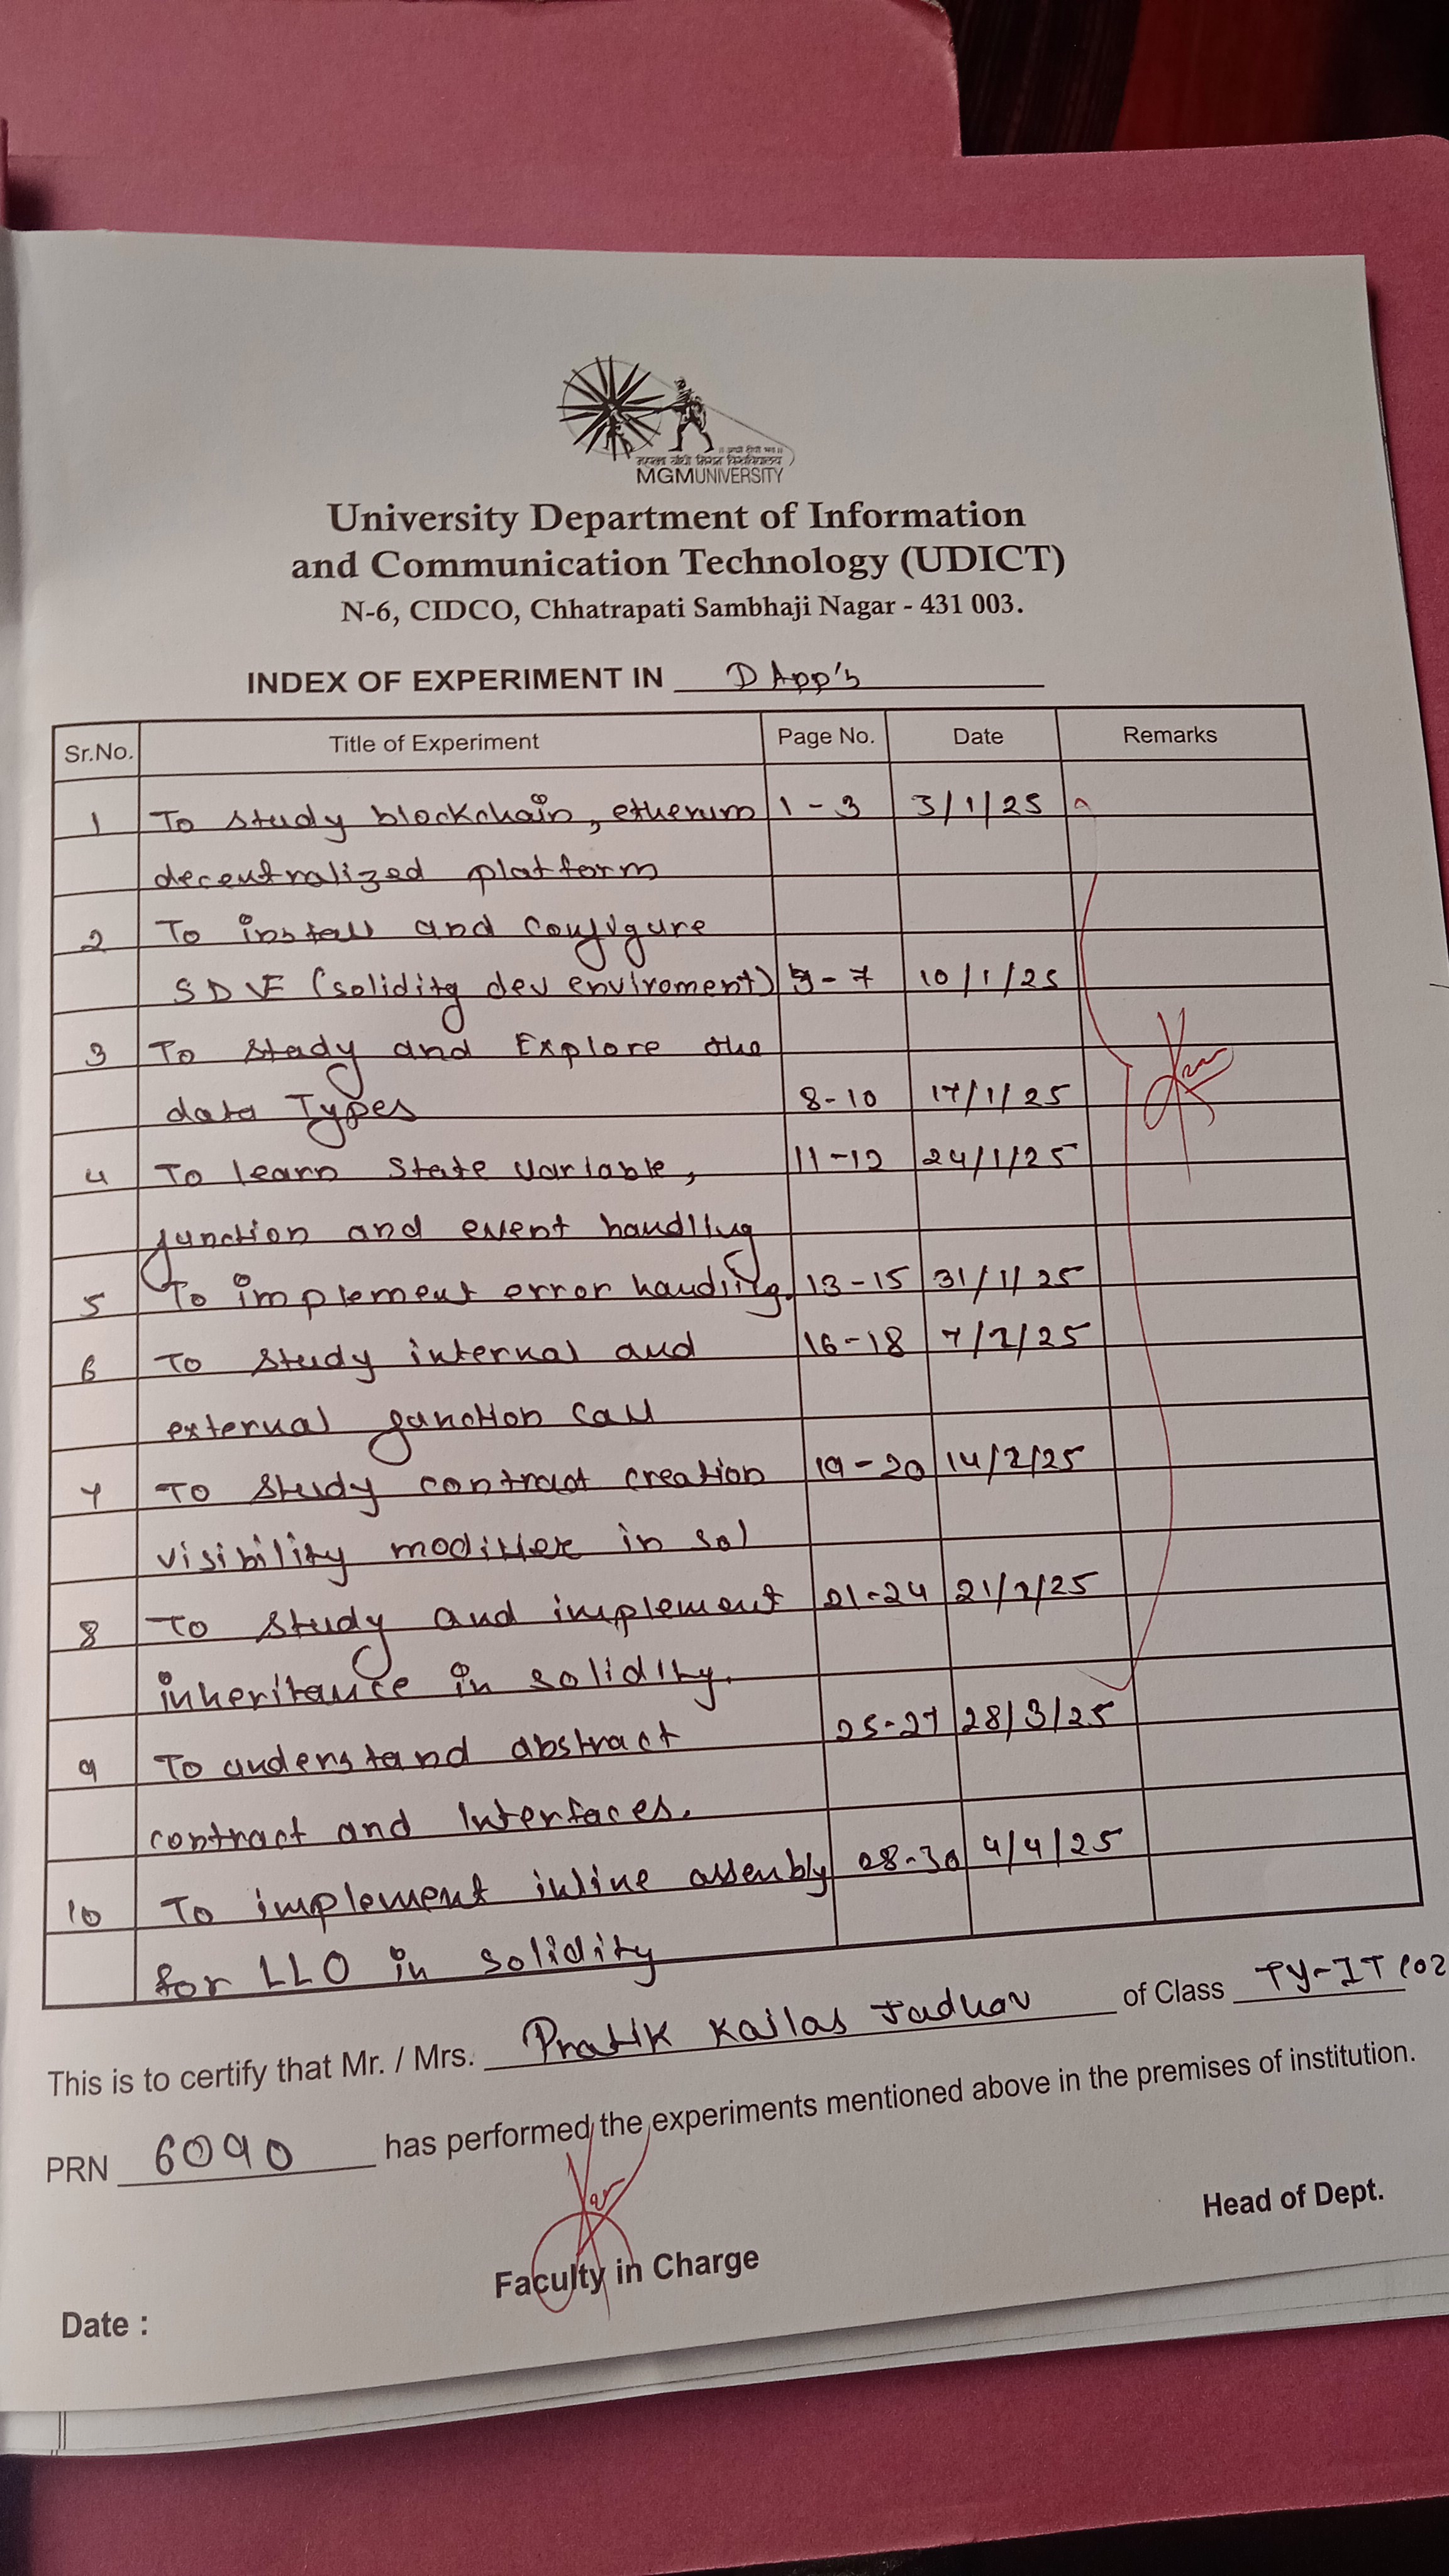 MGMUNIVERSITY
University Department of Information
and Communication Technology (UDICT)
N-6, CIDCO, Chhatrapati Sambhaji Nagar - 431 003.
INDEX OF EXPERIMENT IN D App's
Sr.No. Title of Experiment Page No. Date Remarks
1 To study blockchain, etherum 1-3 3/1/25
decentralized platform
2 To install and configure
SDVE (solidity dev enviroment) -7 10/1/25
3 To study and Explore the
data Types 8-10 17/1/25
4 To learn state variable, 11-12 24/1/25
function and event handling
5 To implement error handling. 13-15 31/1/25
6 To study internal and 16-18 7/2/25
external function call
7 To study contract creation 19-20 14/2/25
visibility modifier in sol
8 To study and implement 21-24 21/2/25
inheritance in solidity.
9 To understand abstract 25-27 28/3/25
contract and Interfaces.
10 To implement inline assembly 28-30 4/4/25
for LLO in solidity
This is to certify that Mr. / Mrs. Pratik Kailas Jadhav of Class TY-IT
PRN 6090 has performed the experiments mentioned above in the premises of institution.
Head of Dept.
Faculty in Charge
Date :